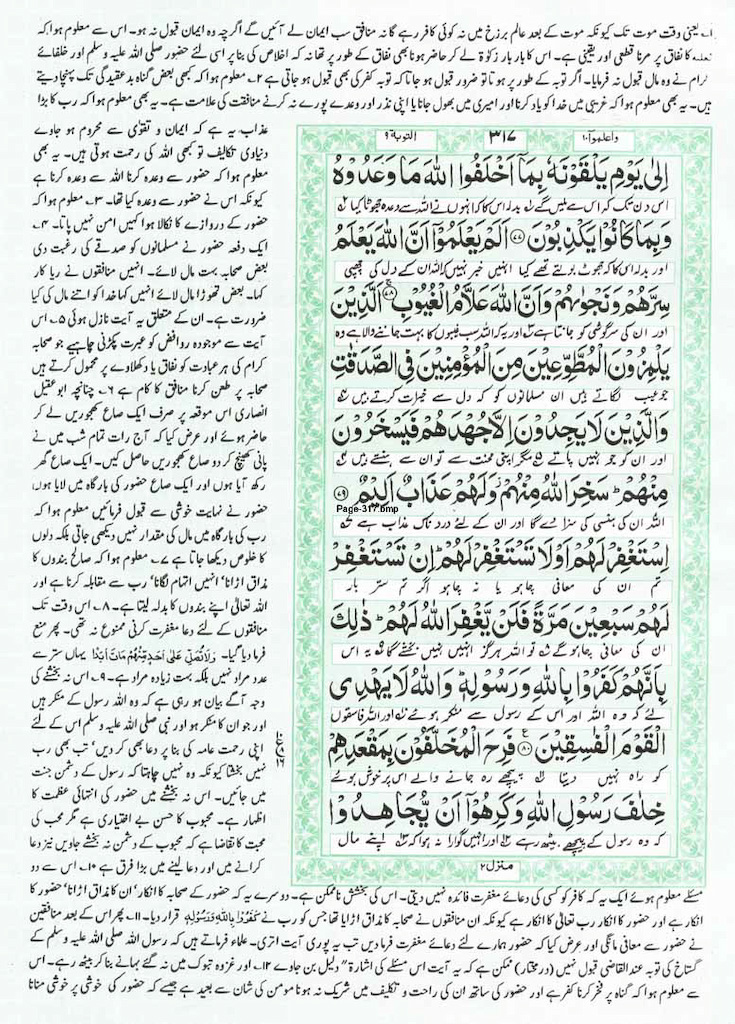 ۱۔ یعنی وقت موت تک کیونکہ موت کے بعد عالم برزخ میں نہ کوئی کافر رہے گا نہ منافق سب ایمان لے آئیں گے اگرچہ وہ ایمان قبول نہ ہو۔ اس سے معلوم ہوا کہ
ثعلبہ کا نفاق پر مرنا قطعی اور یقینی ہے۔ اس کا بار بار زکوٰۃ لے کر حاضر ہونا بھی نفاق کے طور پر تھا نہ کہ اخلاص کی بنا پر اسی لئے حضور صلی اللہ علیہ وسلم اور خلفائے
کرام نے وہ مال قبول نہ فرمایا۔ اگر توبہ کے طور پر ہوتا تو ضرور قبول ہو جاتا کہ توبہ کفر کی بھی قبول ہو جاتی ہے ۲۔ معلوم ہوا کہ کبھی بعض گناہ بدعقیدگی تک پہنچا دیتے
ہیں۔ یہ بھی معلوم ہوا کہ غریبی میں خدا کو یاد کرنا اور امیری میں بھول جانا یا اپنی نذر اور وعدے پورے نہ کرنے منافقت کی علامت ہے۔ یہ بھی معلوم ہوا کہ رب کا بڑا
واعلموا۱۰
۳۱۷
التوبۃ۹
اِلٰی یَوْمِ یَلْقَوْنَهٗ بِمَاۤ اَخْلَفُوا اللّٰهَ مَا وَعَدُوْهُ
اس دن تک کہ اس سے ملیں گے بدلہ اس کا کہ انہوں نے اللہ سے وعدہ جھوٹا کیا
وَبِمَا كَانُوْا یَكْذِبُوْنَ ۷۷ اَلَمْ یَعْلَمُوْۤا اَنَّ اللّٰهَ یَعْلَمُ
اور بدلہ اس کا کہ جھوٹ بولتے تھے کیا انہیں خبر نہیں کہ اللہ ان کے دل کی چھپی
سِرَّهُمْ وَنَجْوٰىهُمْ وَاَنَّ اللّٰهَ عَلَّامُ الْغُیُوْبِ ۷۸ اَلَّذِیْنَ
اور ان کی سرگوشی کو جانتا ہے اور یہ کہ اللہ سب غیبوں کا بہت جاننے والا ہے وہ
یَلْمِزُوْنَ الْمُطَّوِّعِیْنَ مِنَ الْمُؤْمِنِیْنَ فِی الصَّدَقٰتِ
جو عیب لگاتے ہیں ان مسلمانوں کو کہ دل سے خیرات کرتے ہیں
وَالَّذِیْنَ لَا یَجِدُوْنَ اِلَّا جُهْدَهُمْ فَیَسْخَرُوْنَ
اور ان کو جو نہیں پاتے مگر اپنی محنت سے تو ان سے ہنستے ہیں
مِنْهُمْ سَخِرَ اللّٰهُ مِنْهُمْ وَلَهُمْ عَذَابٌ اَلِیْمٌ ۷۹
Page-317.bmp
اللہ ان کی ہنسی کی سزا دے گا اور ان کے لئے دردناک عذاب ہے
اِسْتَغْفِرْ لَهُمْ اَوْ لَا تَسْتَغْفِرْ لَهُمْ اِنْ تَسْتَغْفِرْ
تم ان کی معافی چاہو یا نہ چاہو اگر تم ستر بار
لَهُمْ سَبْعِیْنَ مَرَّةً فَلَنْ یَّغْفِرَ اللّٰهُ لَهُمْ ذٰلِكَ
ان کی معافی چاہو گے تو اللہ ہرگز انہیں نہیں بخشے گا یہ اس
بِاَنَّهُمْ كَفَرُوْا بِاللّٰهِ وَرَسُوْلِهٖ وَاللّٰهُ لَا یَهْدِی
لئے کہ وہ اللہ اور اس کے رسول سے منکر ہوئے اور اللہ فاسقوں
الْقَوْمَ الْفٰسِقِیْنَ ۸۰ فَرِحَ الْمُخَلَّفُوْنَ بِمَقْعَدِهِمْ
کو راہ نہیں دیتا پیچھے رہ جانے والے اس پر خوش ہوئے
خِلٰفَ رَسُوْلِ اللّٰهِ وَكَرِهُوْۤا اَنْ یُّجَاهِدُوْا
کہ وہ رسول کے پیچھے بیٹھ رہے اور انہیں گوارا نہ ہوا کہ اپنے مال
منزل۲
عذاب یہ ہے کہ ایمان و تقویٰ سے محروم ہو جاوے
دنیاوی تکالیف تو کبھی اللہ کی رحمت ہوتی ہیں۔ یہ بھی
معلوم ہوا کہ حضور سے وعدہ کرنا اللہ سے وعدہ کرنا ہے
کیونکہ اس نے حضور سے وعدہ کیا تھا۔ ۳۔ معلوم ہوا کہ
حضور کے دروازے کا نکالا ہوا کہیں امن نہیں پاتا۔ ۴۔
ایک دفعہ حضور نے مسلمانوں کو صدقے کی رغبت دی
بعض صحابہ بہت مال لائے۔ انہیں منافقوں نے ریا کار
کہا۔ بعض تھوڑا مال لائے انہیں کہا خدا کو اتنے مال کی کیا
ضرورت ہے۔ ان کے متعلق یہ آیت نازل ہوئی ۵۔ اس
آیت سے موجودہ روافض کو عبرت پکڑنی چاہیے جو صحابہ
کرام کی ہر عبادت کو نفاق یا دکھلاوے پر محمول کرتے ہیں
صحابہ پر طعن کرنا منافق کا کام ہے ۶۔ چنانچہ ابو عقیل
انصاری اس موقعہ پر صرف ایک صاع کھجوریں لے کر
حاضر ہوئے اور عرض کیا کہ آج رات تمام شب میں نے
پانی کھینچ کر دو صاع کھجوریں حاصل کیں۔ ایک صاع گھر
رکھ آیا ہوں اور ایک صاع حضور کی بارگاہ میں لایا ہوں
حضور نے نہایت خوشی سے قبول فرمائیں معلوم ہوا کہ
رب کی بارگاہ میں مال کی مقدار نہیں دیکھی جاتی بلکہ دلوں
کا خلوص دیکھا جاتا ہے ۷۔ معلوم ہوا کہ صالح بندوں کا
مذاق اڑانا انہیں اتہام لگانا رب سے مقابلہ کرنا ہے اور
اللہ تعالیٰ اپنے بندوں کا بدلہ لیتا ہے۔ ۸۔ اس وقت تک
منافقوں کے لئے دعا مغفرت کرنی ممنوع نہ تھی۔ پھر منع
فرما دیا گیا۔ وَلَا تُصَلِّ عَلٰى اَحَدٍ مِّنْهُمْ مَّاتَ اَبَدًا یہاں ستر سے
عدد مراد نہیں بلکہ بہت زیادہ مراد ہے۔ ۹۔ نہ بخشے کی
وجہ آگے بیان ہو رہی ہے کہ وہ اللہ رسول کے منکر ہیں
اور جو ان کا منکر ہو اور نبی صلی اللہ علیہ وسلم اس کے لئے
اپنی رحمت عامہ کی بنا پر دعا بھی کر دیں تب بھی رب
نہیں بخشتا کیونکہ وہ نہیں چاہتا کہ رسول کے دشمن جنت
میں جائیں۔ اس نہ بخشے میں حضور کی انتہائی عظمت کا
اظہار ہے۔ محبوب کا حسن بے اختیاری ہے مگر محب کی
محبت کا تقاضا ہے کہ محبوب کے دشمن نہ بخشے جاویں نیز دعا
کرانے میں اور دعا لینے میں بڑا فرق ہے ۱۰۔ اس سے دو
مسئلے معلوم ہوئے ایک یہ کہ کافر کو کسی کی دعائے مغفرت فائدہ نہیں دیتی۔ اس کی بخشش ناممکن ہے۔ دوسرے یہ کہ حضور کے صحابہ کا انکار ان کا مذاق اڑانا حضور کا
انکار ہے اور حضور کا انکار رب تعالیٰ کا انکار ہے کیونکہ ان منافقوں نے صحابہ کا مذاق اڑایا تھا جس کو رب نے كَفَرُوْا بِاللّٰهِ وَرَسُوْلِهٖ قرار دیا۔ ۱۱۔ پھر اس کے بعد منافقین
نے حضور سے معافی مانگی اور عرض کیا کہ حضور ہمارے لئے دعائے مغفرت فرما دیں تب یہ پوری آیت اتری۔ علماء فرماتے ہیں کہ رسول اللہ صلی اللہ علیہ وسلم کے
گستاخ کی توبہ عند القاضی قبول نہیں (در مختار) ممکن ہے کہ یہ آیت اس مسئلے کی اشارۃً دلیل بن جاوے ۱۲۔ اور غزوہ تبوک میں نہ گئے بہانے بنا کر بیٹھ رہے۔ اس
سے معلوم ہوا کہ گناہ پر فخر کرنا کفر ہے اور حضور کی ساتھ ان کی راحت و تکلیف میں شریک نہ ہونا مومن کی شان سے بعید ہے جیسے کہ حضور کی خوشی پر خوشی منانا